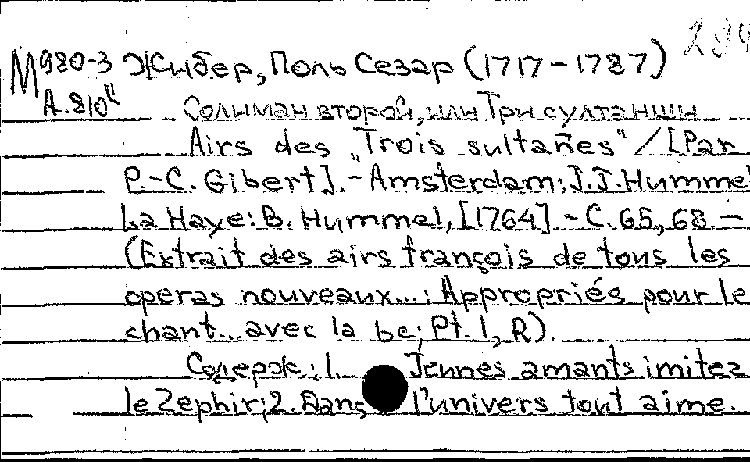 М980-3 Жибер, Поль Сезар (1717-1787)
А.810" Солиман второй, или Три султанши
Airs des „Trois sultanes" / [Par
P.-C. Gibert]. - Amsterdam; J.J. Humme
La Haye: B. Hummel, [1764] - C. 65, 68 -
(Extrait des airs françois de tous les
operas nouveaux...: Appropriés pour le
chant... avec la bc; Pt. 1, R).
Содерж: 1. Jennes amants imitez
le Zephir; 2. Dans l'univers tout aime.